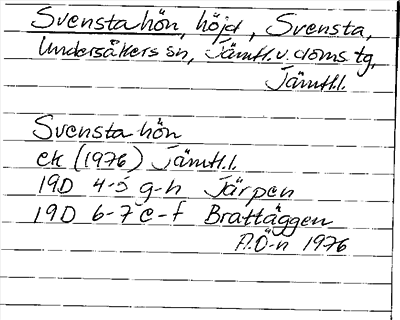 Svenstahön, höjd, Svensta,
Undersåkers sn, Jämtl. v. doms. tg,
Jämtl.l.
Svenstahön
ek (1976) Jämtl.l.
19D 4-5 g-h Järpen
19D 6-7 e-f Brattäggen
P.Ö-n 1976